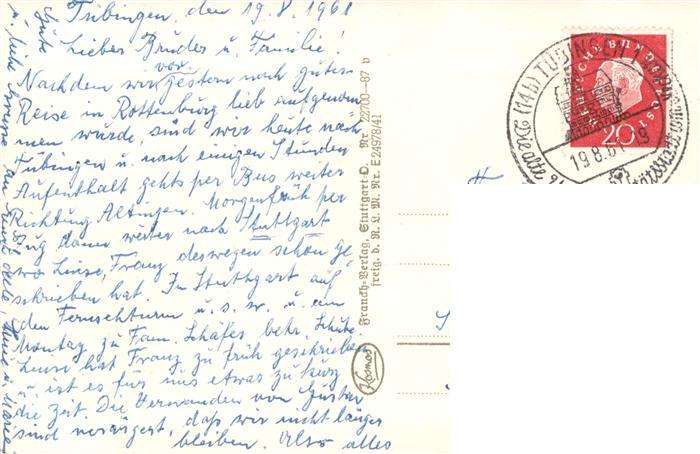 Tübingen, den 19.8.1961
Lieber Bruder u. Familie!
Nachdem wir vorgestern nach guter
Reise in Rottenburg lieb aufgenom
men wurde, sind wir heute nach
Tübingen u. nach einigen Stunden
Aufenthalt gehts per Bus weiter
Richtung Altingen. Morgenfrüh per
Zug dann weiter nach Stuttgart
wo Luise, Franz deswegen schon ge
schrieben hat. In Stuttgart auf
den Fernsehturm u.s.w. u. am
Montag zu Fam. Schäfer
Luise hat Franz zu früh geschrieben
u. ist es für uns etwas zu kurz
die Zeit. Die Verwandten von Gustav
sind verärgert, daß wir nicht länger
bleiben. Also alles
Gute
u. liebe Grüsse
Franckh-Verlag, Stuttgart-O. Nr. 22700-87 v
freig. d. R. L. M. Nr. E 24978/41
Kosmos
DEUTSCHE BUNDESPOST
20
(14b) TÜBINGEN 1
19.8.61-19
Die alte